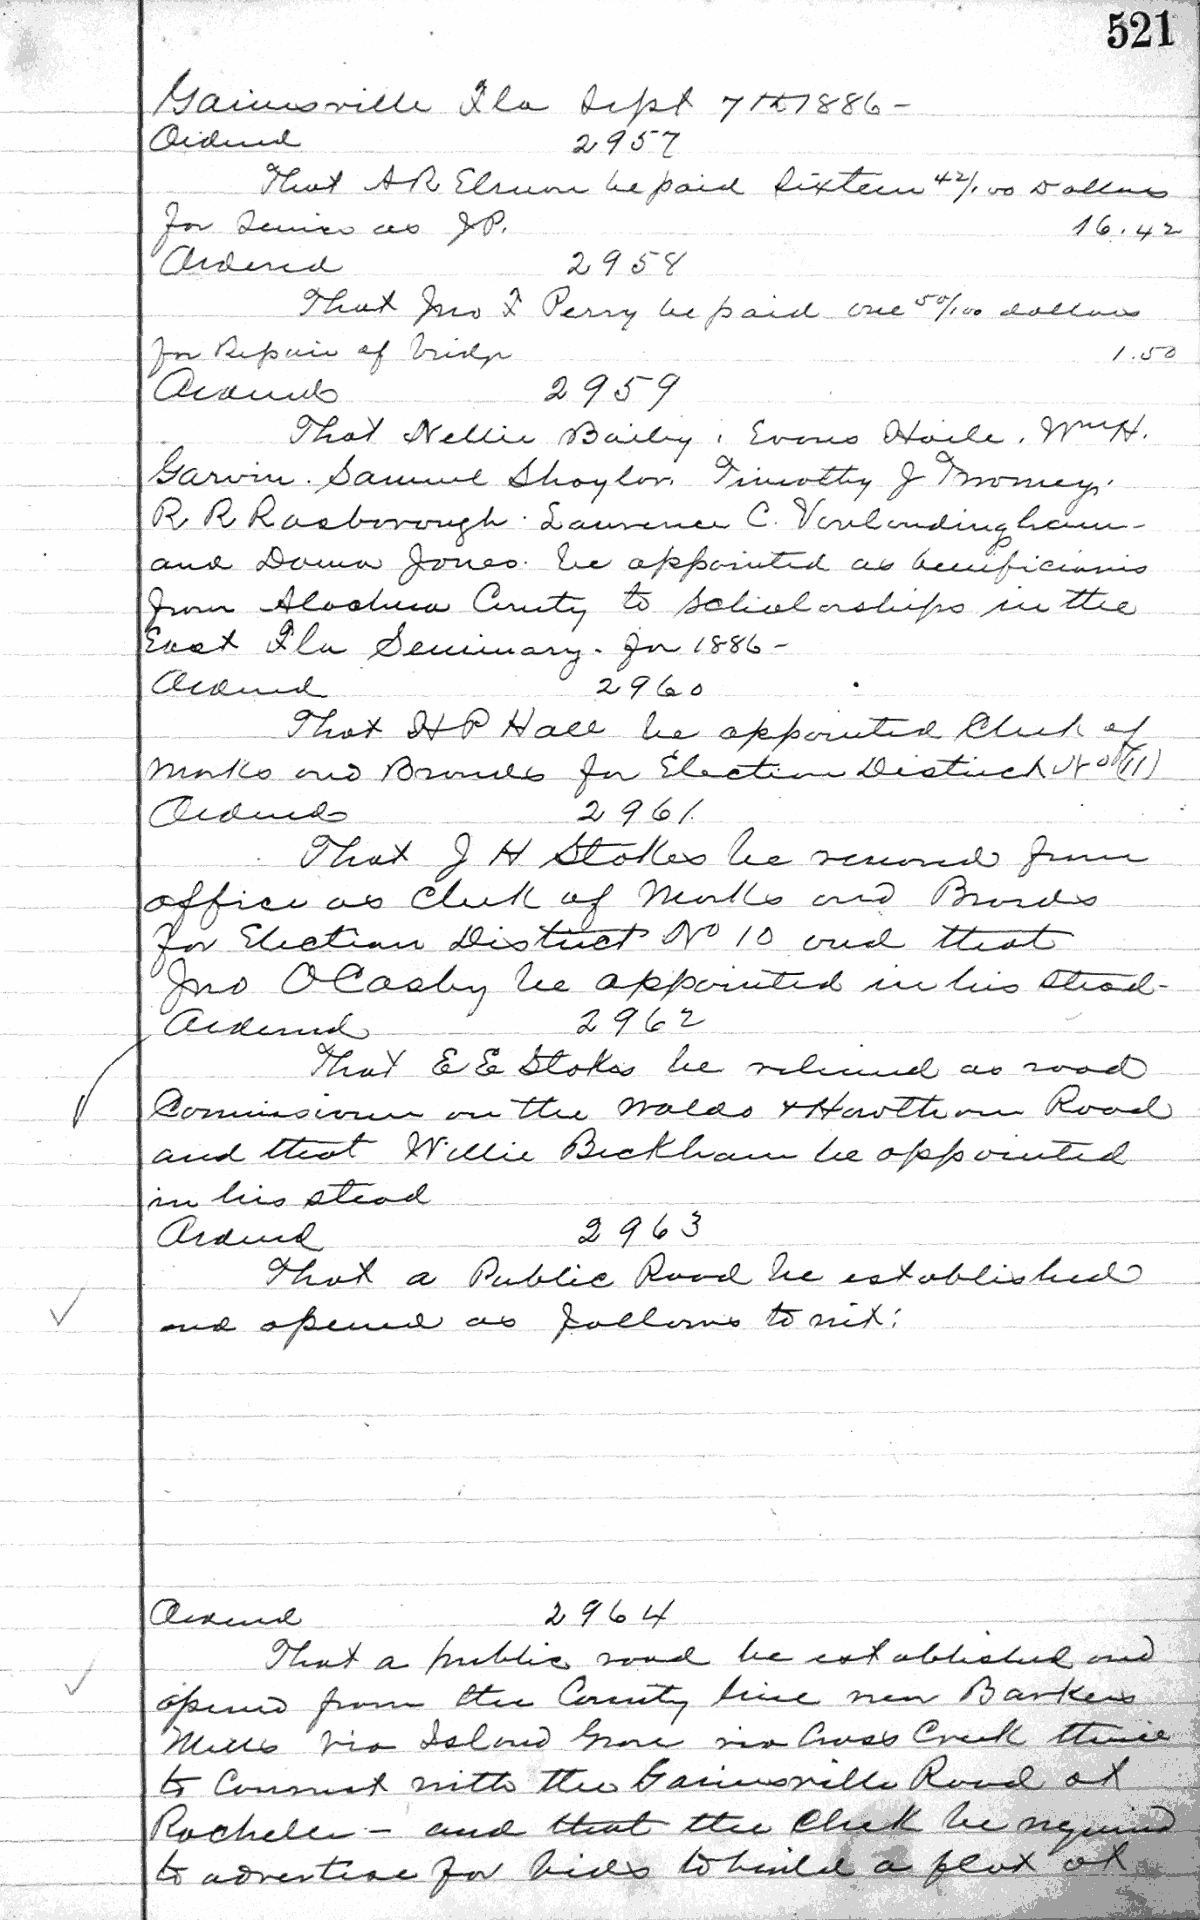 521
Gainesville Fla Sept 7th 1886 -
Ordered 2957
That A R Elmore be paid Sixteen 42/100 Dollars
for Services as J P. 16.42
Ordered 2958
That Jno F Perry be paid one 50/100 dollars
for Repair of bridge 1.50
Ordered 2959
That Nellie Baily, Evans Haile, Wm H.
Garvin. Samuel Shaylor. Timothy J Twomey.
R R Rasborough. Laurence C. Vanlandingham -
and Jones. be appointed as beneficiaries
from Alachua County to Scholarships in the
East Fla Seminary. for 1886 -
Ordered 2960
That H P Hall be appointed Clerk of
Marks and Brands for Election District No (11)
Ordered 2961.
That J H Stokes be removed from
office as Clerk of Marks and Brands
for Election District No 10 and that
Jno O Casby be appointed in his Stead -
Ordered 2962
That E E Stokes be relieved as road
Commissioner on the Waldo & Hawthorn Road
and that Willie Beckham be appointed
in his stead
Ordered 2963
That a Public Road be established
and opened as follows to wit:
Ordered 2964
That a public road be established and
opened from the County line near Barkers
Mills via Island Grove via Cross Creek thence
to Connect with the Gainesville Road at
Rochelle - and that the Clerk be required
to advertise for bids to build a flat at